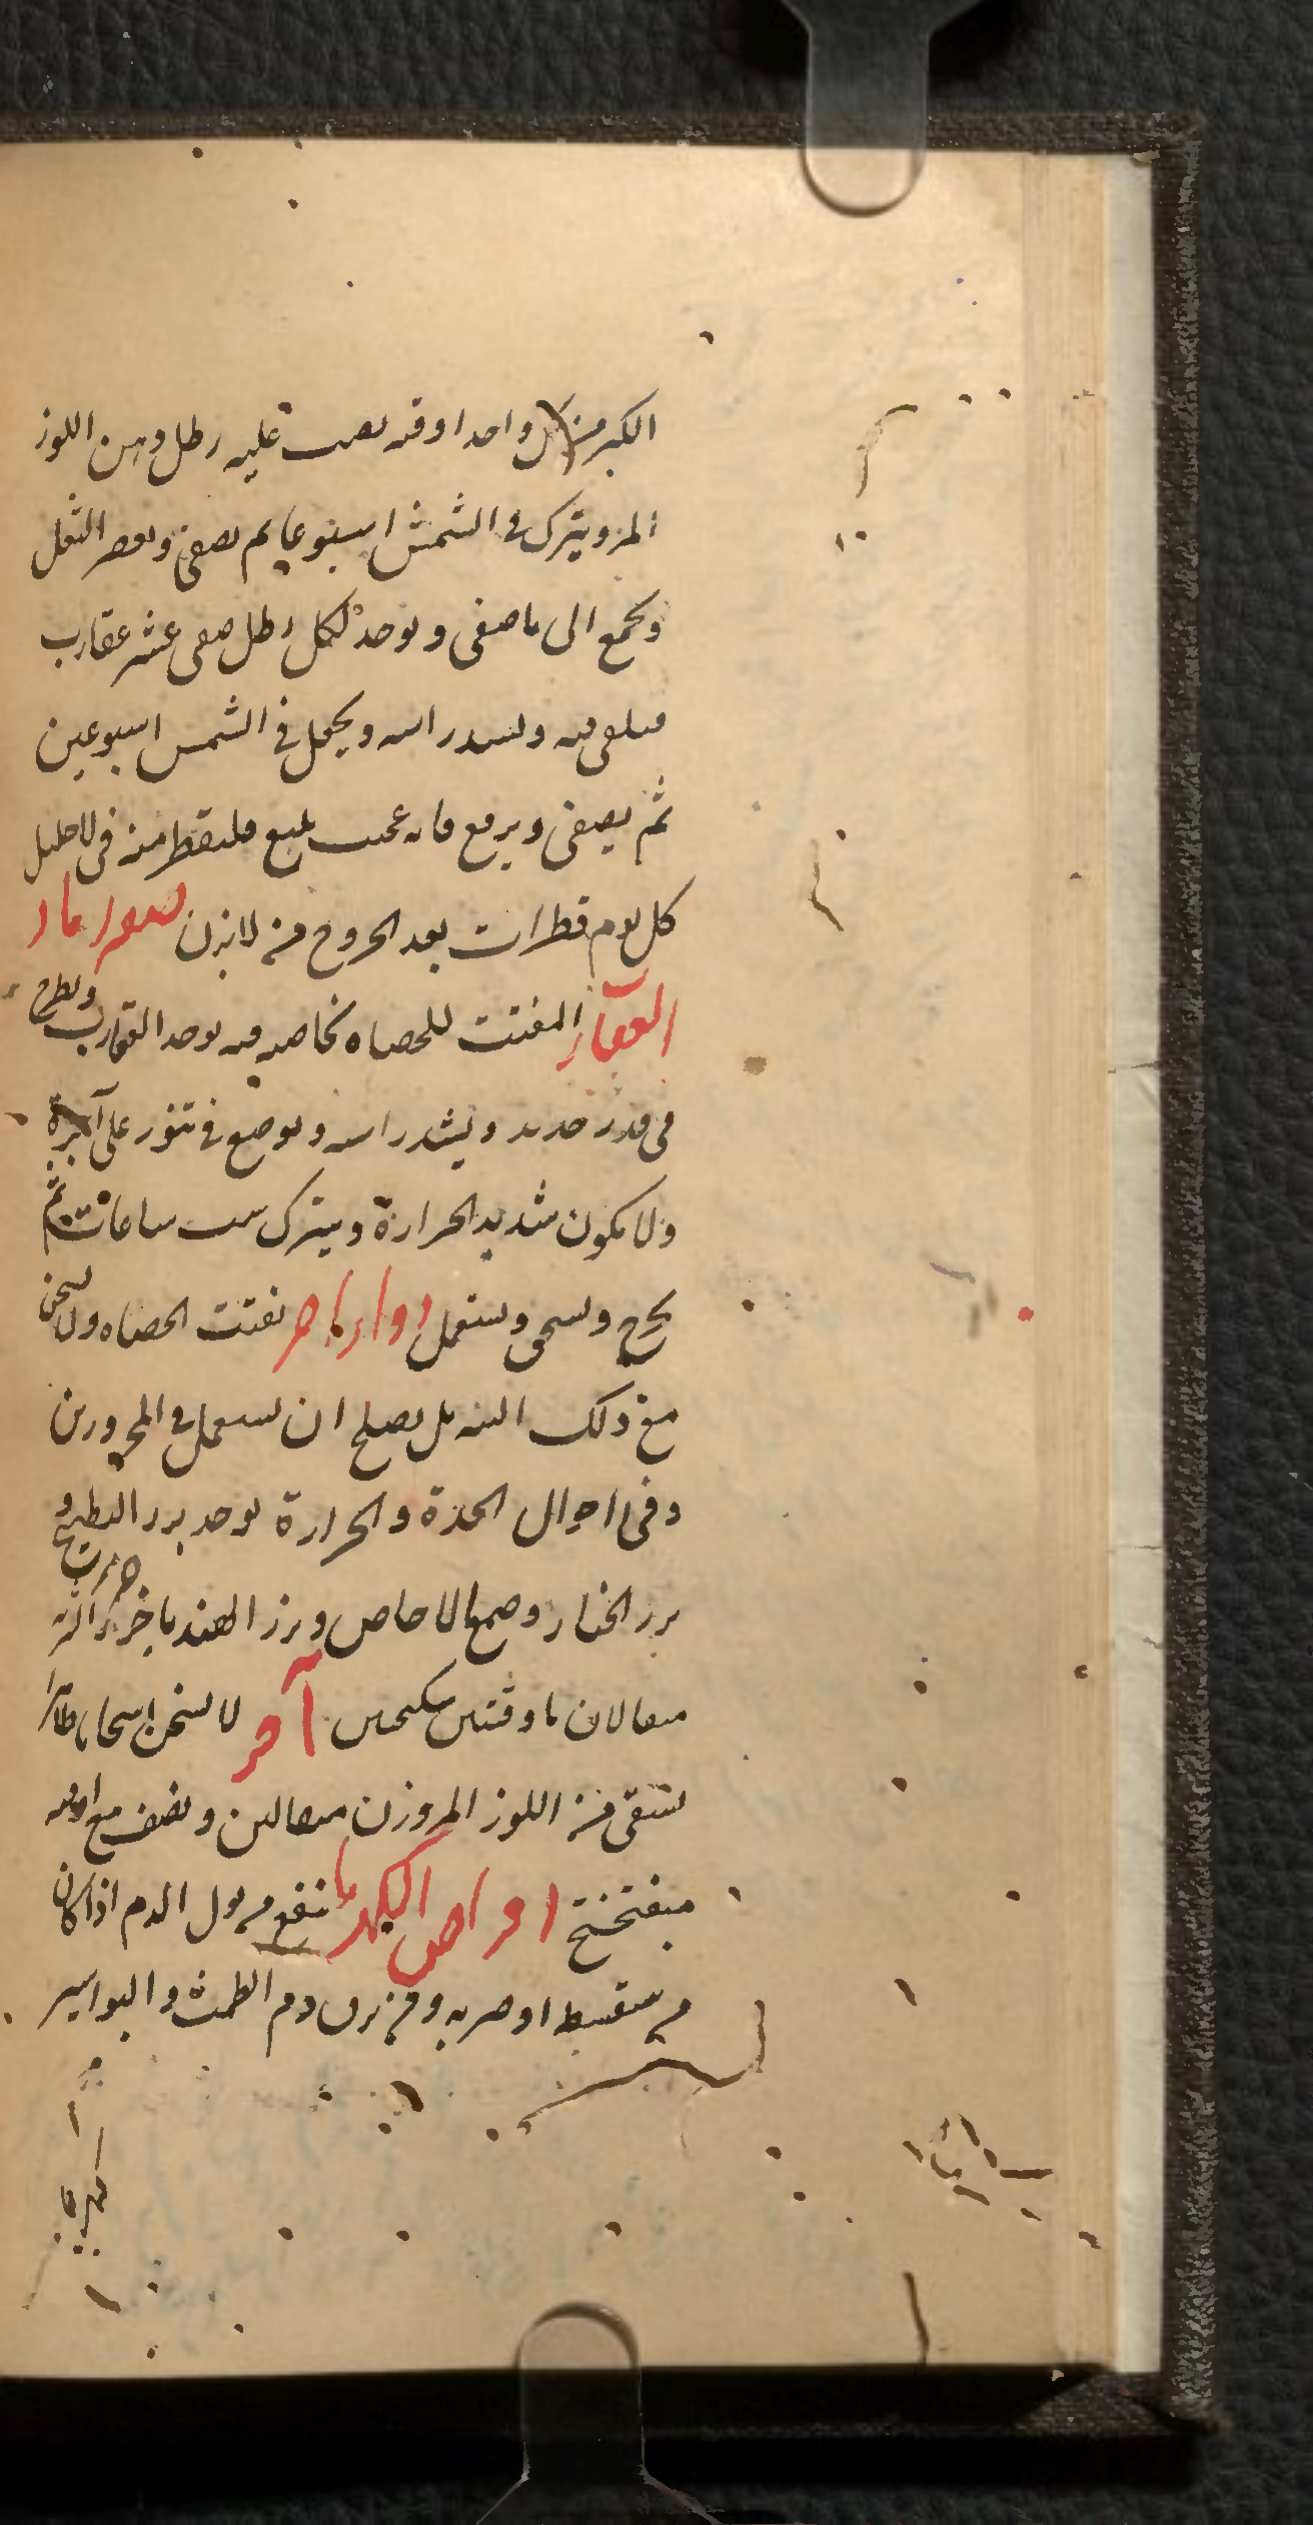 الكبر من كل واحد اوقيه يصب عليه رطل دهن اللوز
المر ويترك فى الشمس اسبوعا ثم يصفى ويعصر الثفل
ويجمع الى ما صفى ويوخذ لكل رطل صفى عشر عقارب
فيلقى فيه ويسد راسه ويجعل فى الشمس اسبوعين
ثم يصفى ويرفع فانه عجيب فليقطر منه فى الاحليل
كل يوم قطرات بعد الخروج من الابزن
العقارب المفتت للحصاه بخاصيه فيه يوخذ العقارب ويطرح
فى قدر جديد ويشد راسه ويوضع فى تنور على آجرة
ولا يكون شديد الحرارة ويترك ست ساعات ثم
يخرج ويسحق ويستعمل دواء اخر يفتت الحصاه ولا يسخن
مع ذلك البته بل يصلح ان يستعمل فى المحرورين
وفى احوال الحدة والحرارة يوخذ بزر البطيخ و
بزر الخيار وصمغ الاجاص وبزر الهندبا
مثقالان باوقيتين سكنجبين آخر لا يسخن اسخانا ظاهرا
يستقى من اللوز المر وزن مثقالين ونصف مع اوقيه
ميفختج اقراص الكهربا ينفع من بول الدم اذا كان
من سقطه او ضربه ومن نزف دم الطمث والبواسير
كهربا